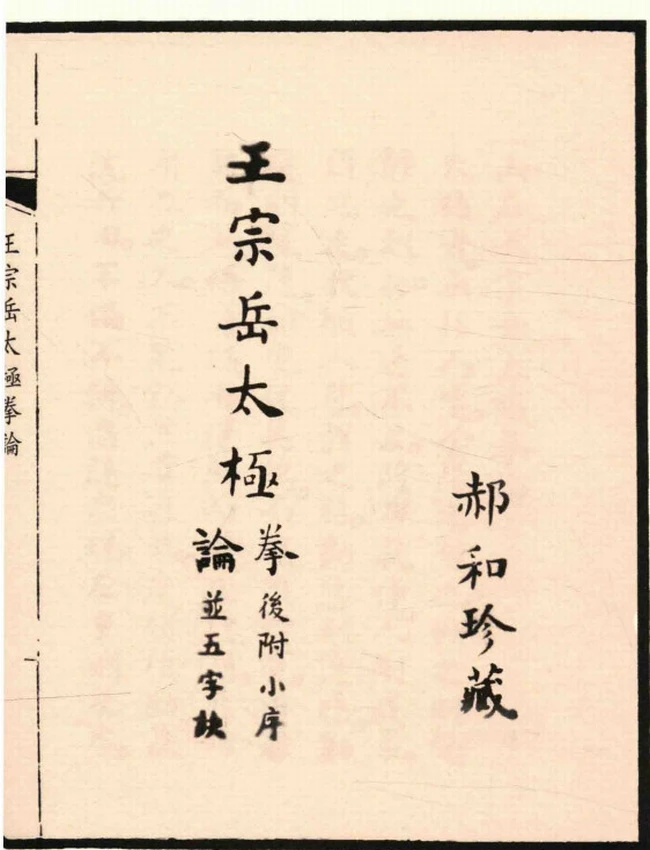 郝和珍藏
王宗岳太極拳論後附小序並五字訣
王宗岳太極拳論